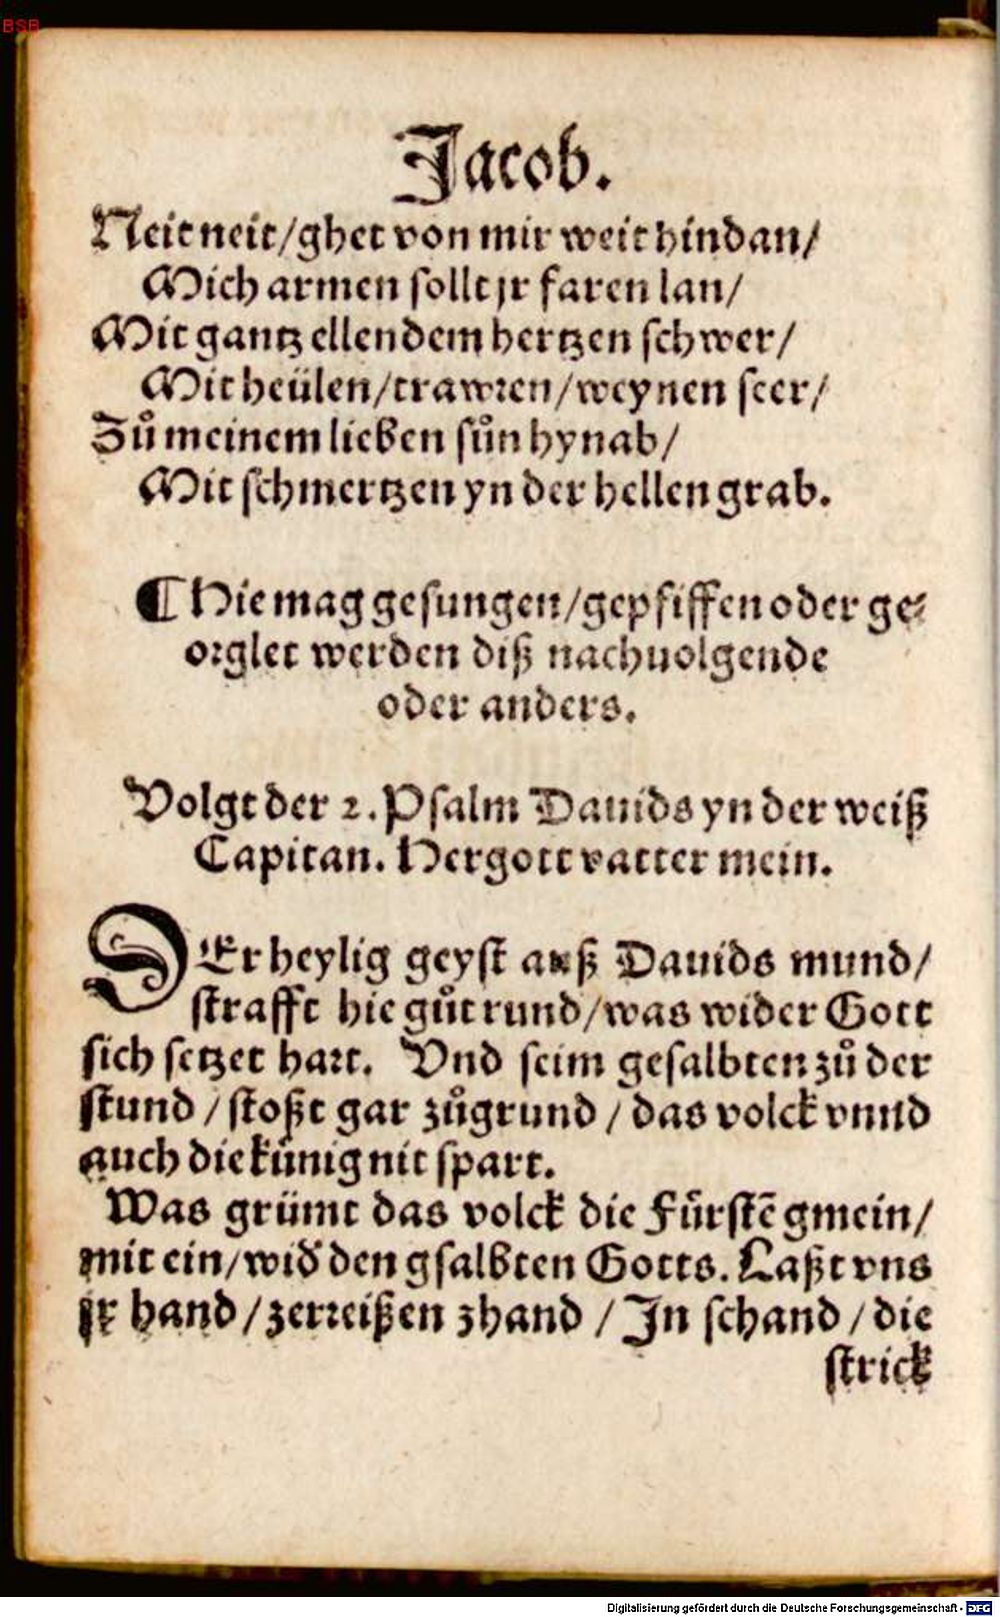 BSB
Jacob.
Neit neit/ghet von mir weit hindan/
Mich armen sollt jr faren lan/
Mit gantz ellendem hertzen schwer/
Mit heülen/trawren/weynen seer/
Zů meinem lieben sůn hynab/
Mit schmertzen yn der hellen grab.
¶ Hie mag gesungen/gepfiffen oder ge⸗
orglet werden diß nachuolgende
oder anders.
Volgt der 2. Psalm Dauids yn der weiß
Capitan. Hergott vatter mein.
DEr heylig geyst auß Dauids mund/
strafft hie gůt rund/was wider Gott
sich setzet hart. Vnd seim gesalbten zů der
stund / stoßt gar zůgrund / das volck vnnd
auch die künig nit spart.
Was grümt das volck die Fürstē gmein/
mit ein/wid̓ den gsalbten Gotts. Laßt vns
jr hand/zerreißen zhand / In schand/die
strick
Digitalisierung gefördert durch die Deutsche Forschungsgemeinschaft - DFG